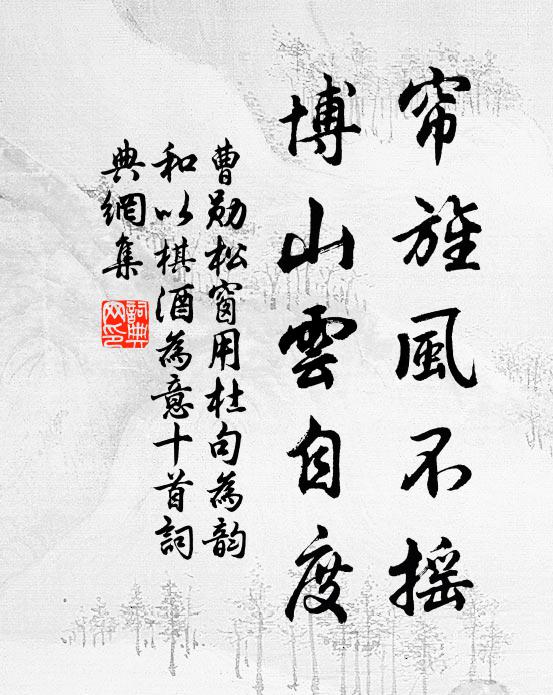 帘旌風不摇
博山雲自度
曹勛松窗用杜句為韵
和以棋酒為意十首詞
典網集
詞典網印